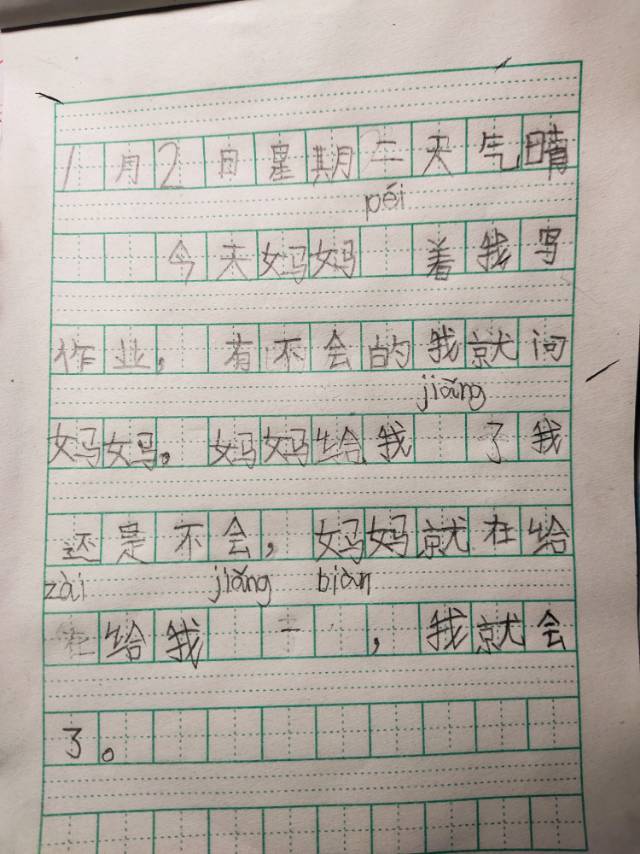 1月2日星期二天气晴
péi
今天妈妈 着我写
作业，有不会的我就问
jiǎng
妈妈。妈妈给我 了我
还是不会，妈妈就在给
zài jiǎng biàn
在给我 一 ，我就会
了。